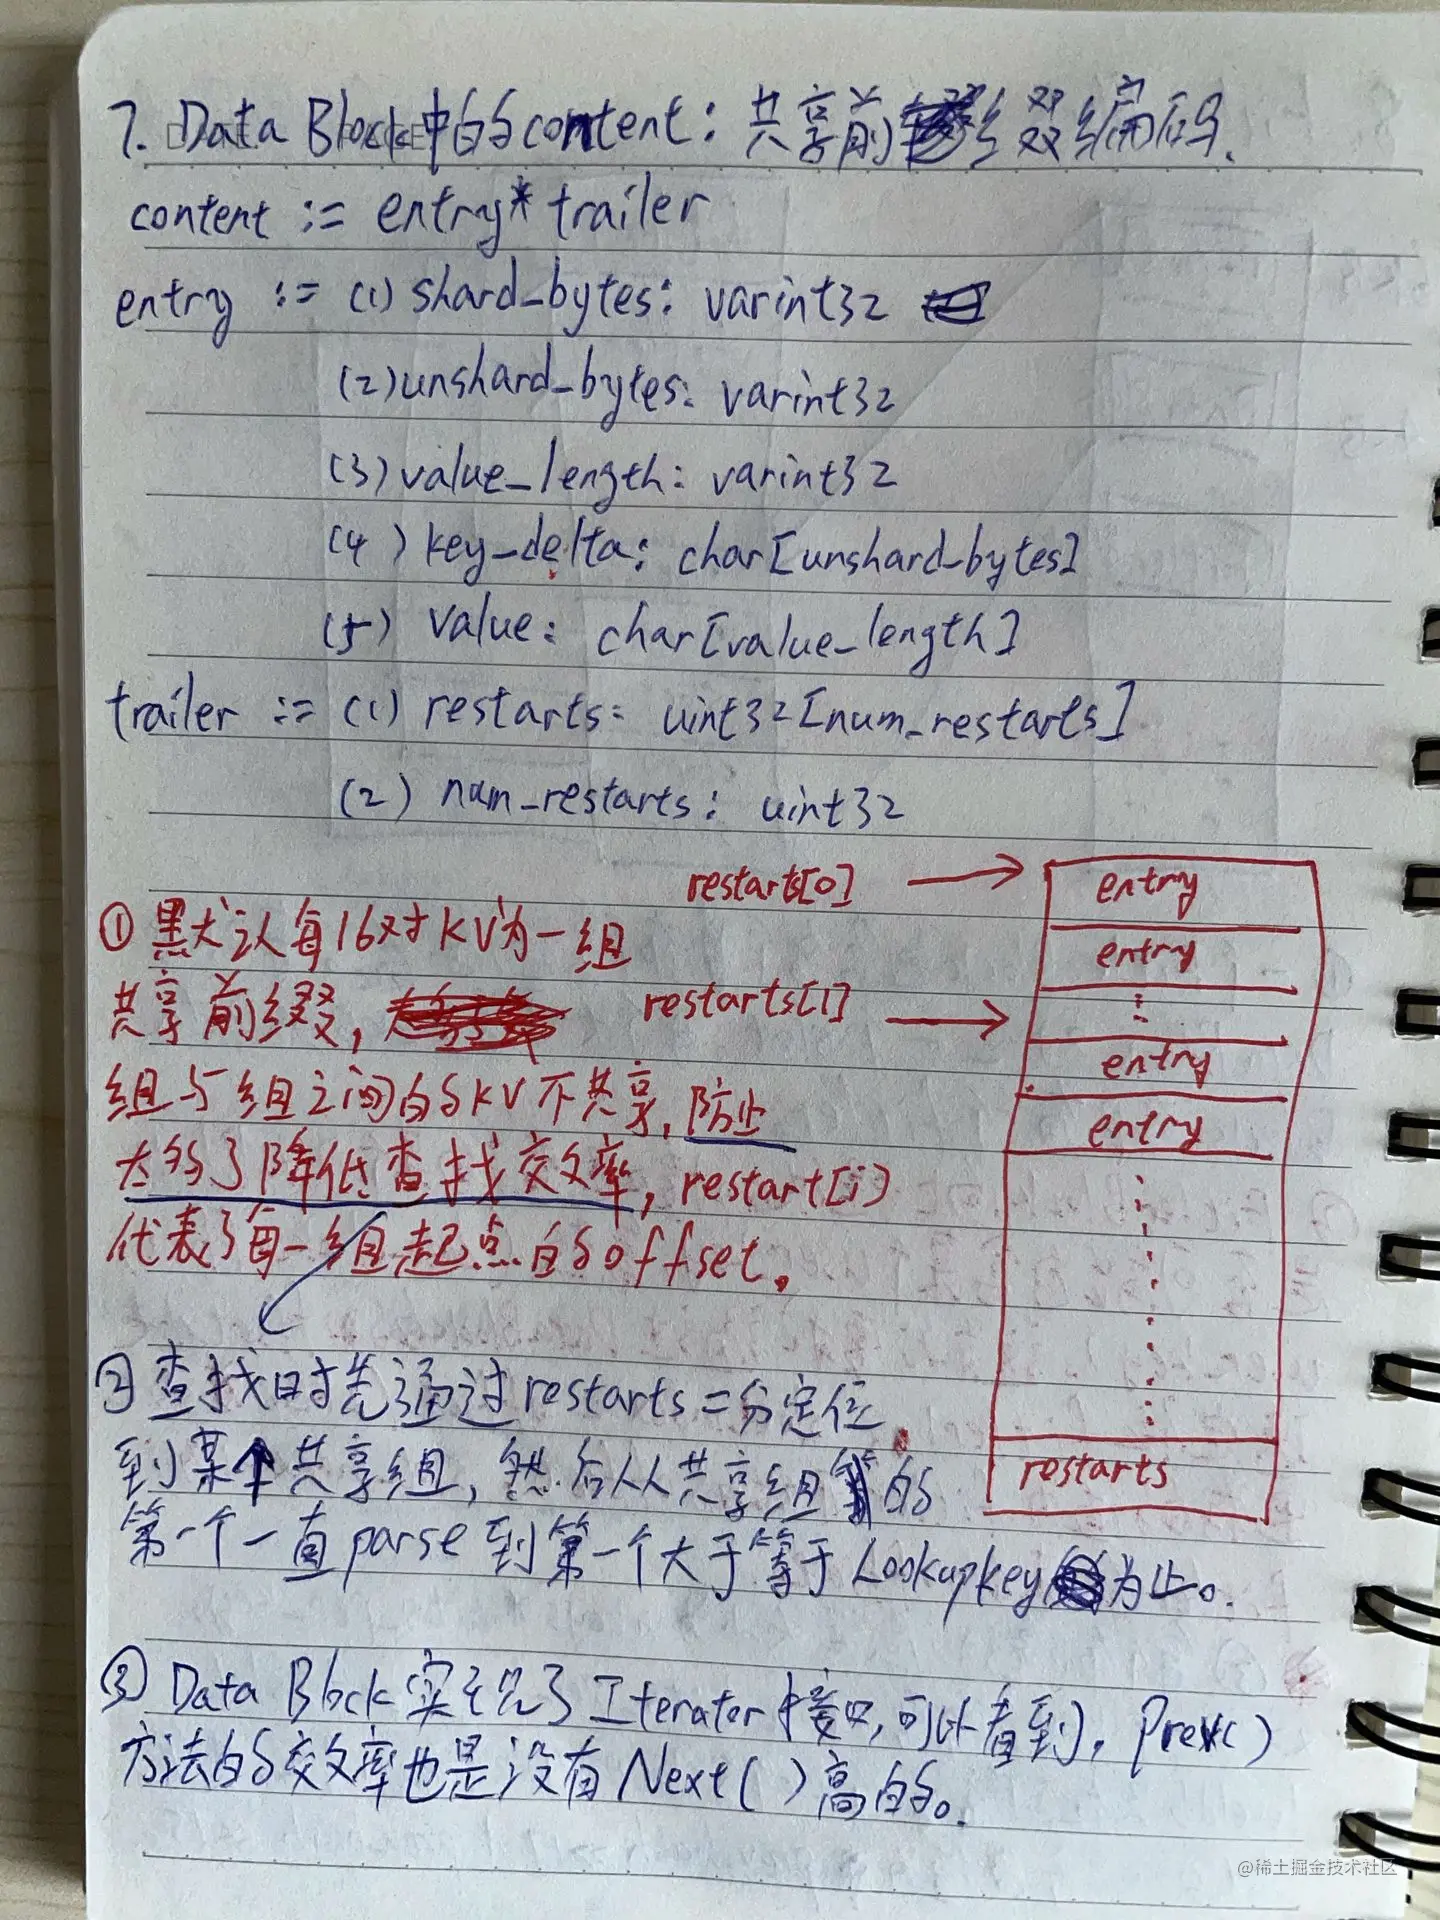 7. Data Block中的content：共享前缀编码.
content := entry* trailer
entry := (1) shard_bytes: varint32
(2) unshard_bytes: varint32
(3) value_length: varint32
(4) key_delta: char[unshard_bytes]
(5) value: char[value_length]
trailer := (1) restarts: uint32[num_restarts]
(2) num_restarts: uint32
restarts[0] → entry
① 默认每16对KV为一组
entry
共享前缀,
restarts[1] →
⋮
entry
组与组之间的KV不共享, 防止
entry
太多了降低查找效率, restart[i]
代表了每一组起点的offset。
② 查找时先通过restarts二分定位
到某个共享组, 然后从共享组的
restarts
第一个一直parse到第一个大于等于Lookupkey为止。
③ Data Block实现了Iterator接口, 可以看到, Prev()
方法的效率也是没有Next()高的。
@稀土掘金技术社区